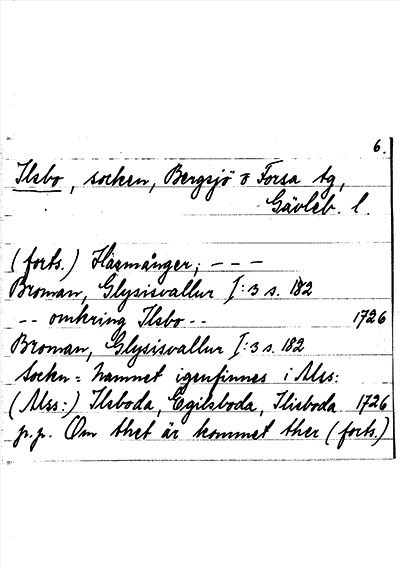 6.
Ilsbo, socken, Bergsjö o Forsa tg,
Gävleb. l.
(forts.) Hågmånger, - - -
Broman, Glysisvallur I:3 s. 182
-- omkring Ilsbo -- 1726
Broman, Glysisvallur I:3 s. 182
Sockn = namnet igenfinnes i Mss:
(Mss:) Ilsboda, Egilsboda, Ilisboda 1726
p.p. Om thet är kommet ther (forts.)